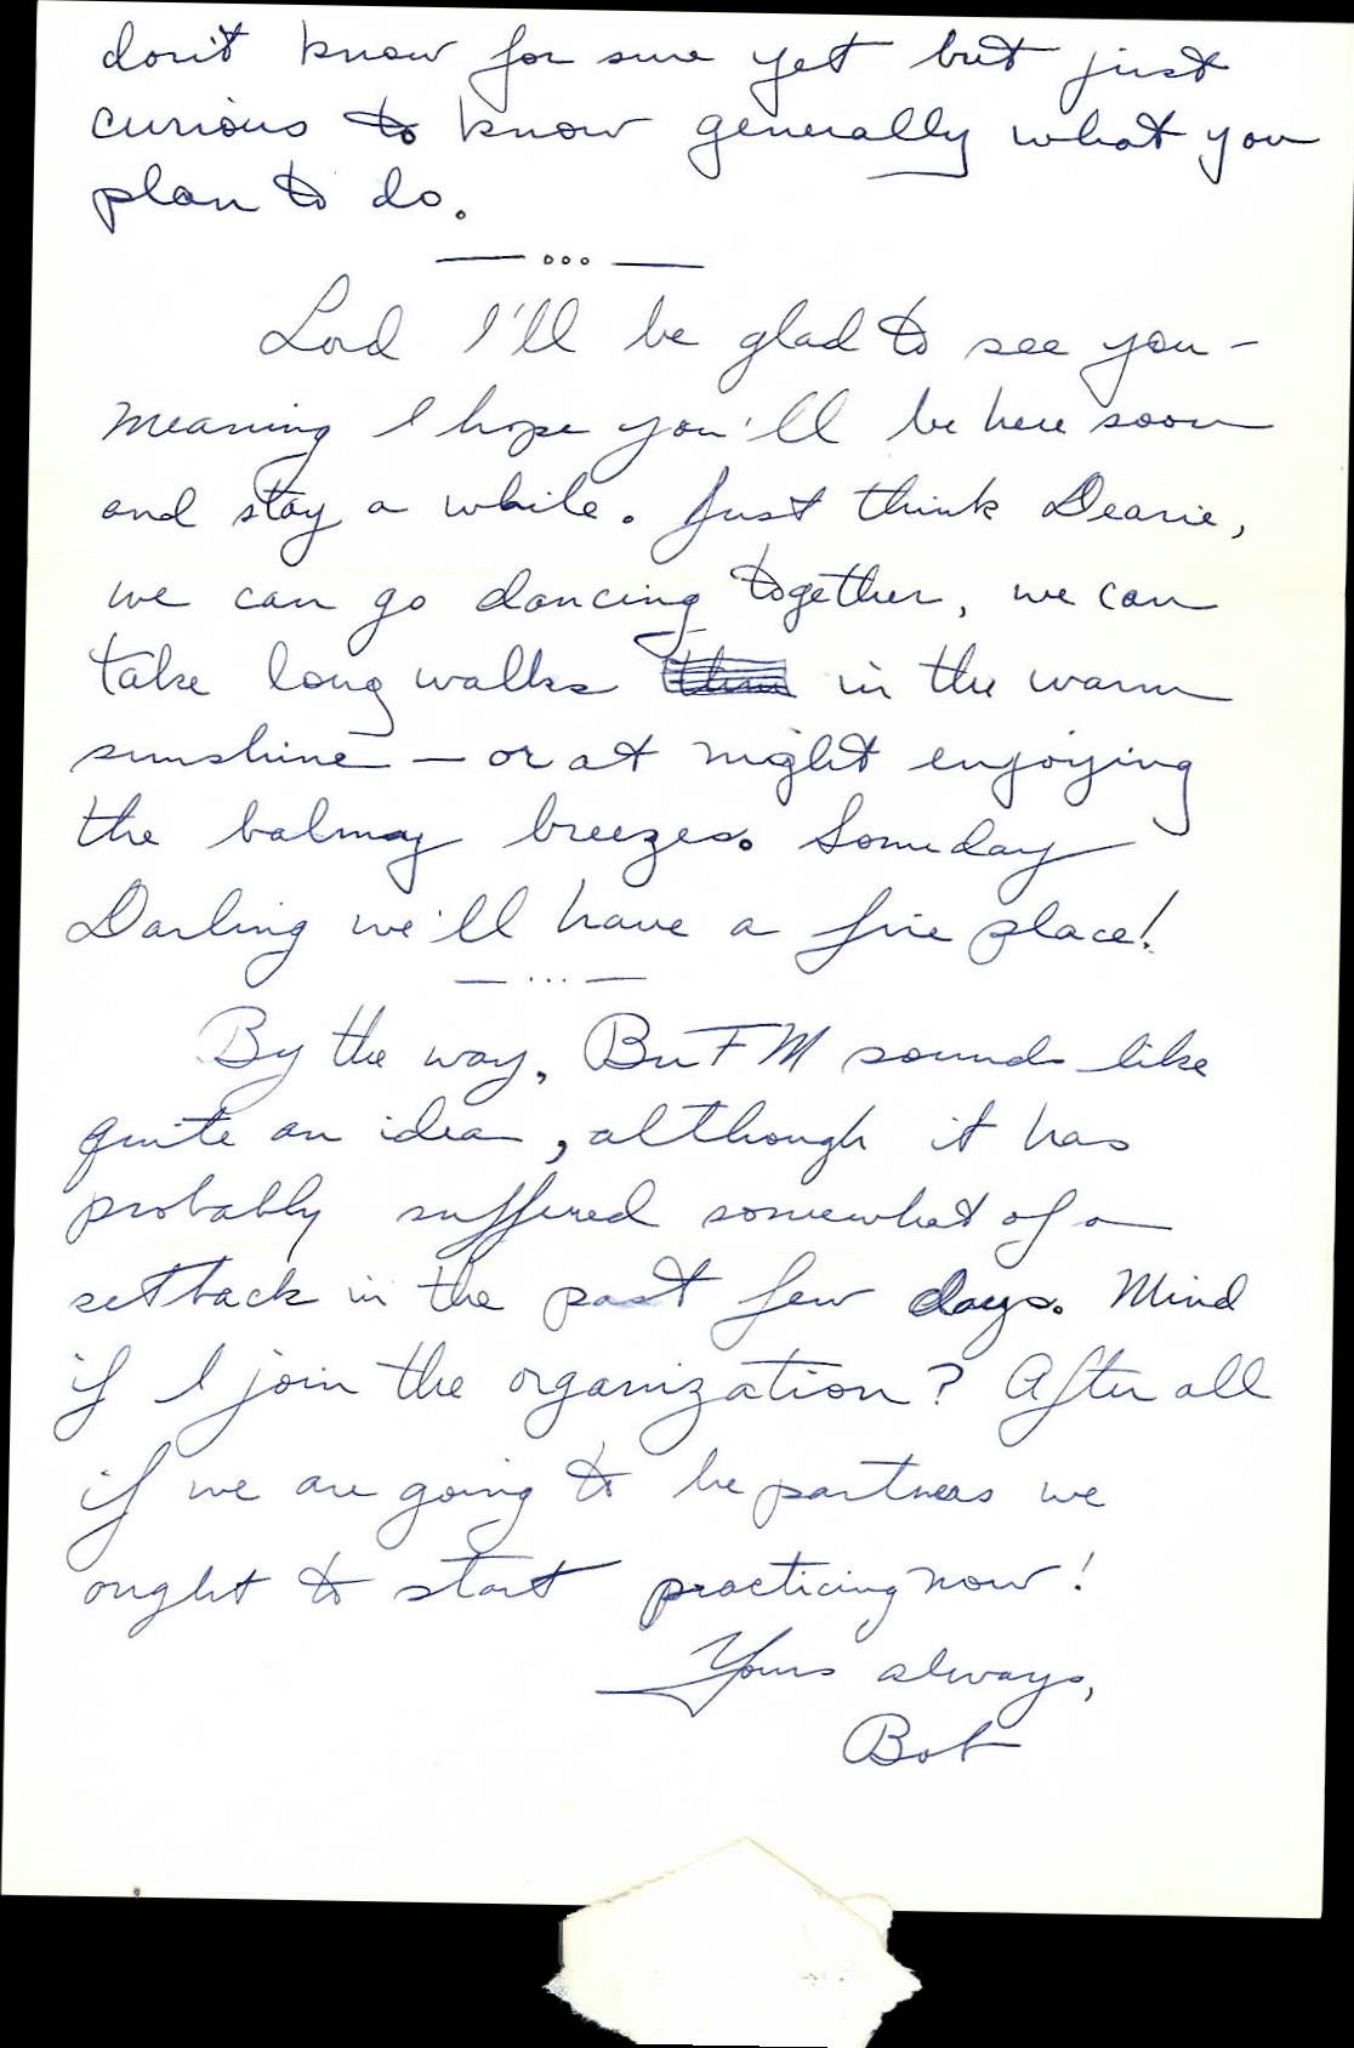 don't know for sure yet but just
curious to know generally what you
plan to do.
— ... —
Lord I'll be glad to see you -
meaning I hope you'll be here soon
and stay a while. Just think Dearie,
we can go dancing together, we can
take long walks in the warm
sunshine - or at night enjoying
the balmay breezes. Someday
Darling we'll have a fire place!
— ... —
By the way, BuFM sounds like
quite an idea, although it has
probably suffered somewhat of a
setback in the past few days. Mind
if I join the organization? After all
if we are going to be partners we
ought to start practicing now!
Yours always,
Bob